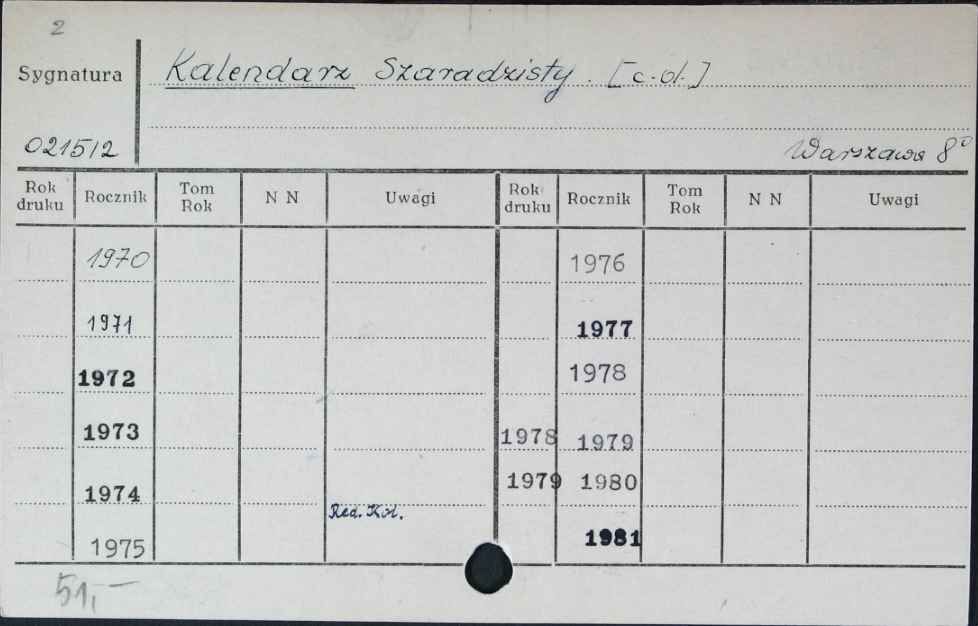 2
Sygnatura
Kalendarz Szaradzisty. [c.d.]
021512
Warszawa 8°
Rok druku Rocznik Tom Rok N N Uwagi Rok druku Rocznik Tom Rok N N Uwagi
1970 1976
1971 1977
1972 1978
1973 1978 1979
1974 1979 1980
Red. Kol.
1975 1981
51,-